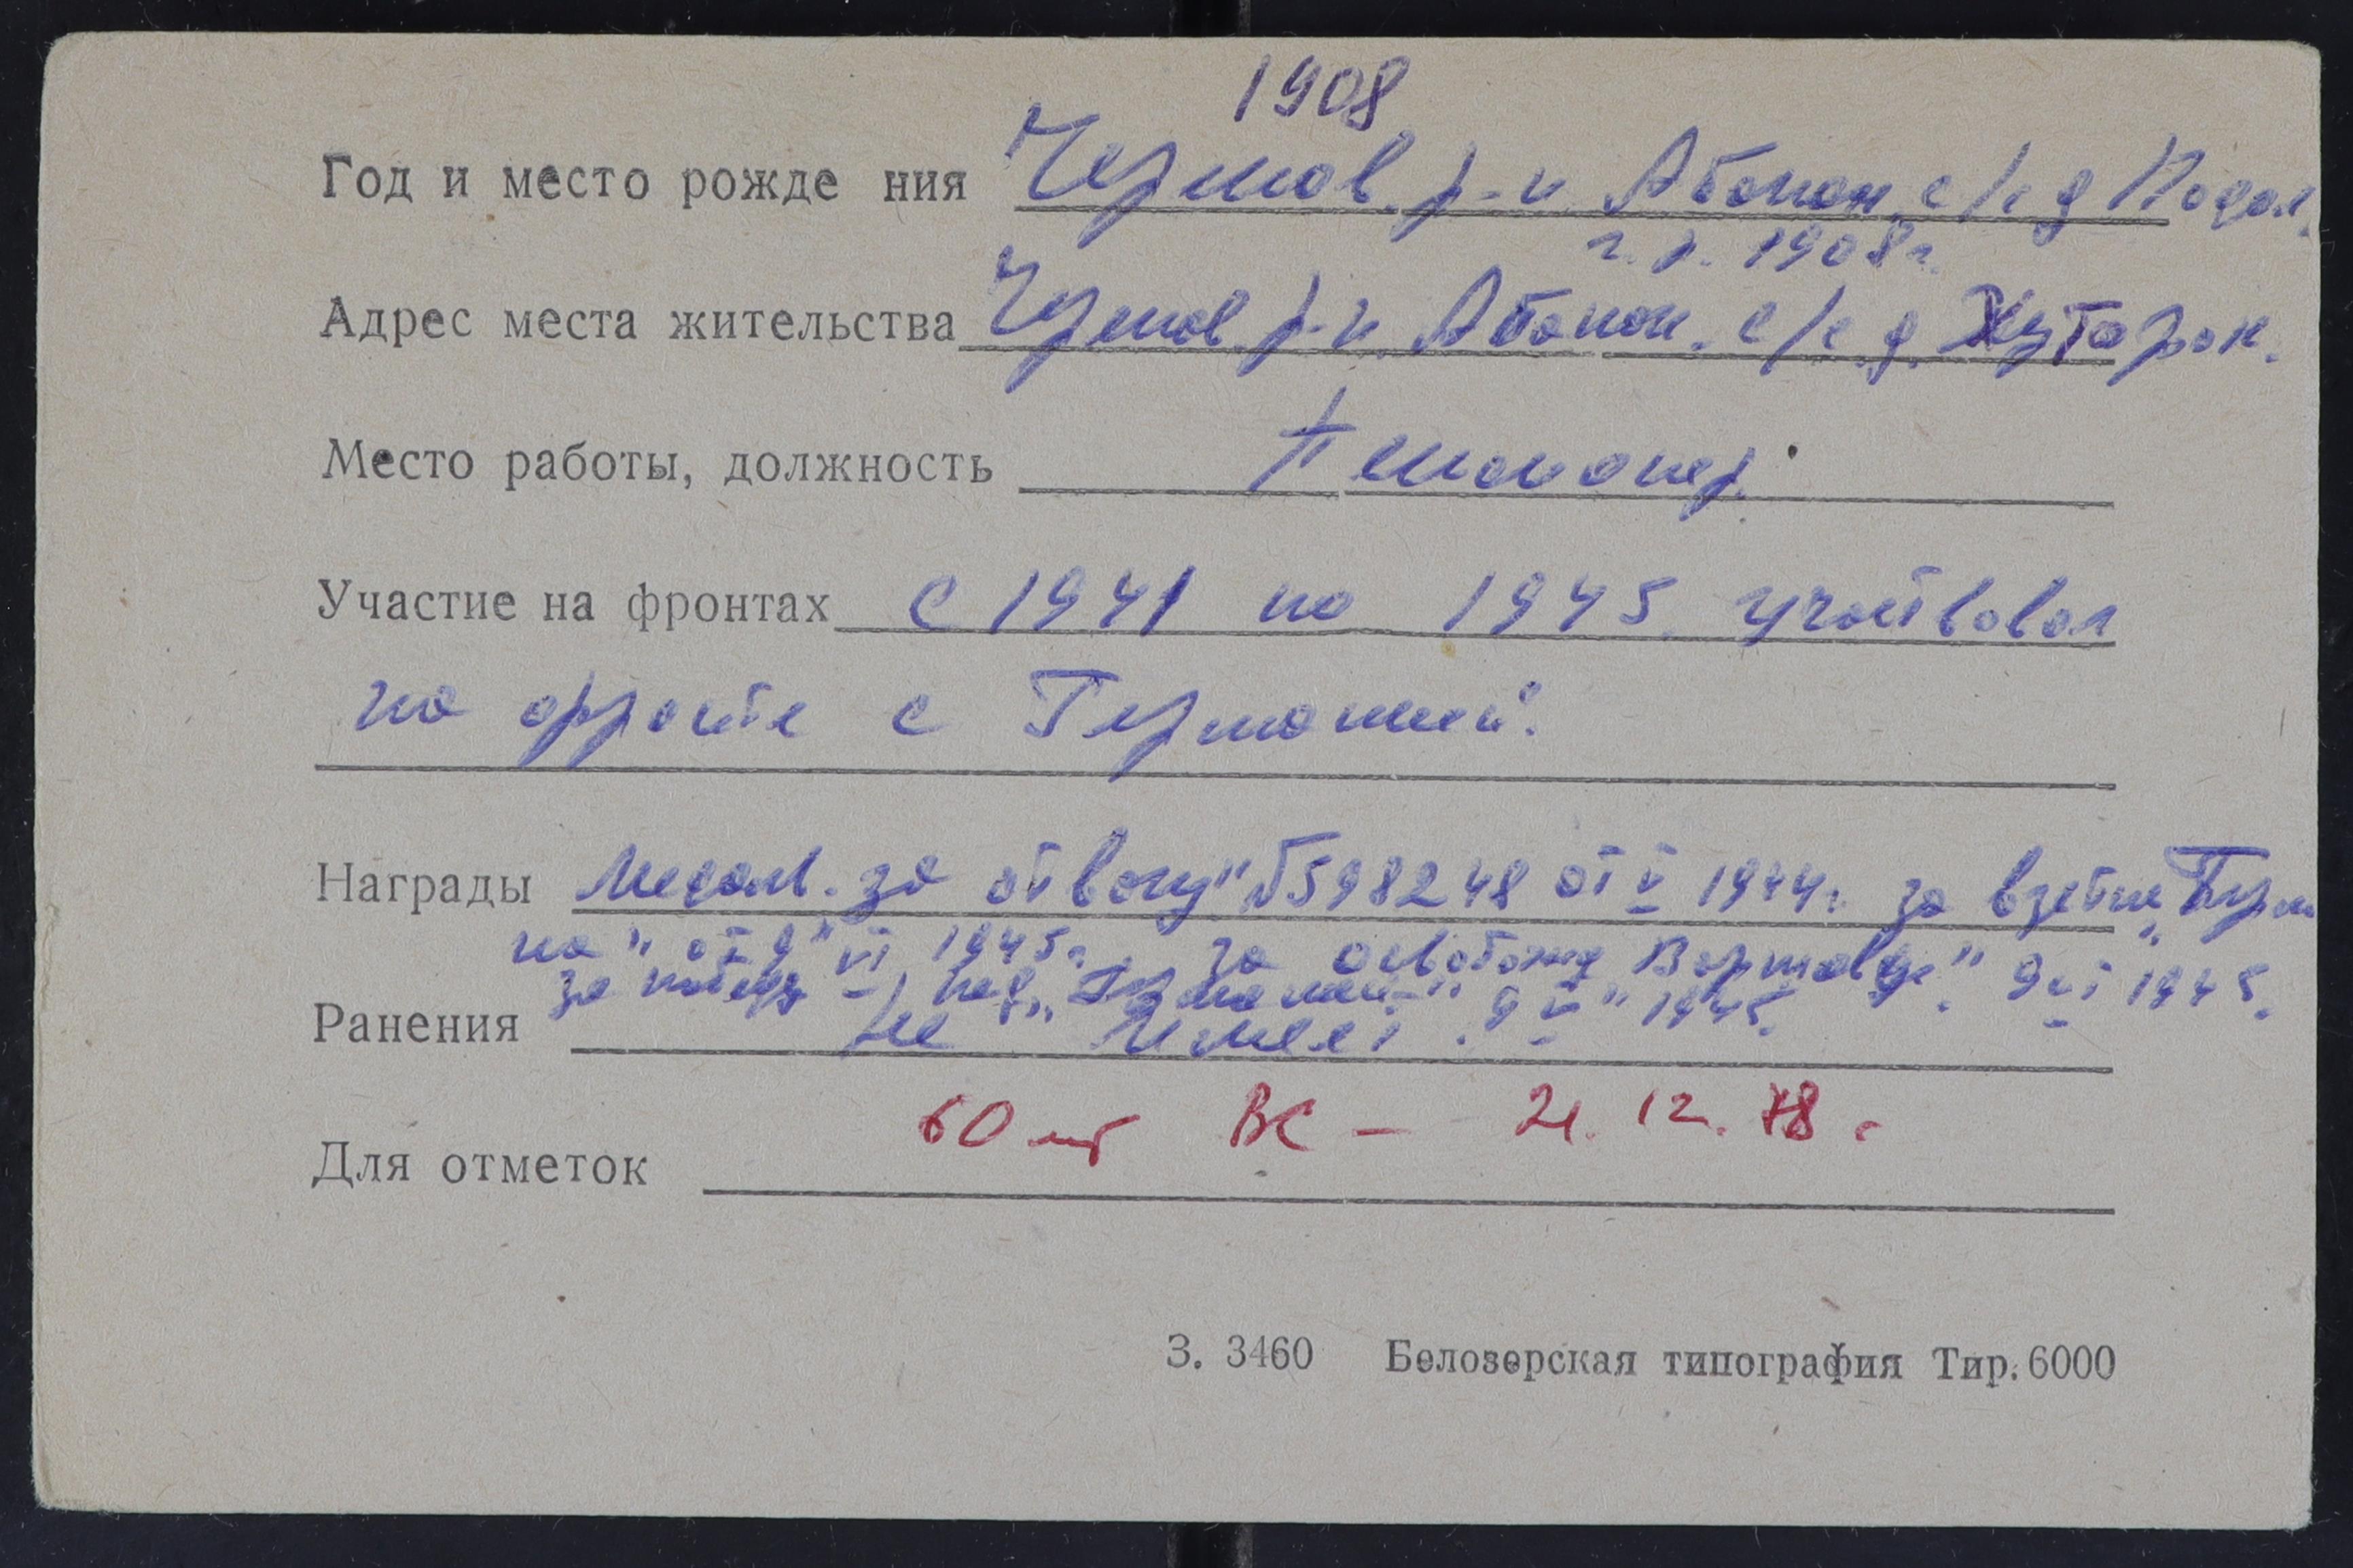 1908
Год и место рожде ния Чермов. р-н Абокон. с/с д Подол.
г. р. 1908 г.
Адрес места жительства Чермов. р-н. Абокон. с/с д. Хуторок.
Место работы, должность Пенсионер.
Участие на фронтах с 1941 по 1945 участвовал
на фронте с Германией.
Награды Медаль за отвагу" №598248 от V 1944г. за взятие "Берли
на" от 9" VI 1945г. за освобожд "Варшавы" 9 VI 1945.
за победу над "Германией" 9 V" 1945.
Ранения Не имеет
60 лет ВС - 21. 12. 78 г
Для отметок
З. 3460 Белозерская типография Тир. 6000